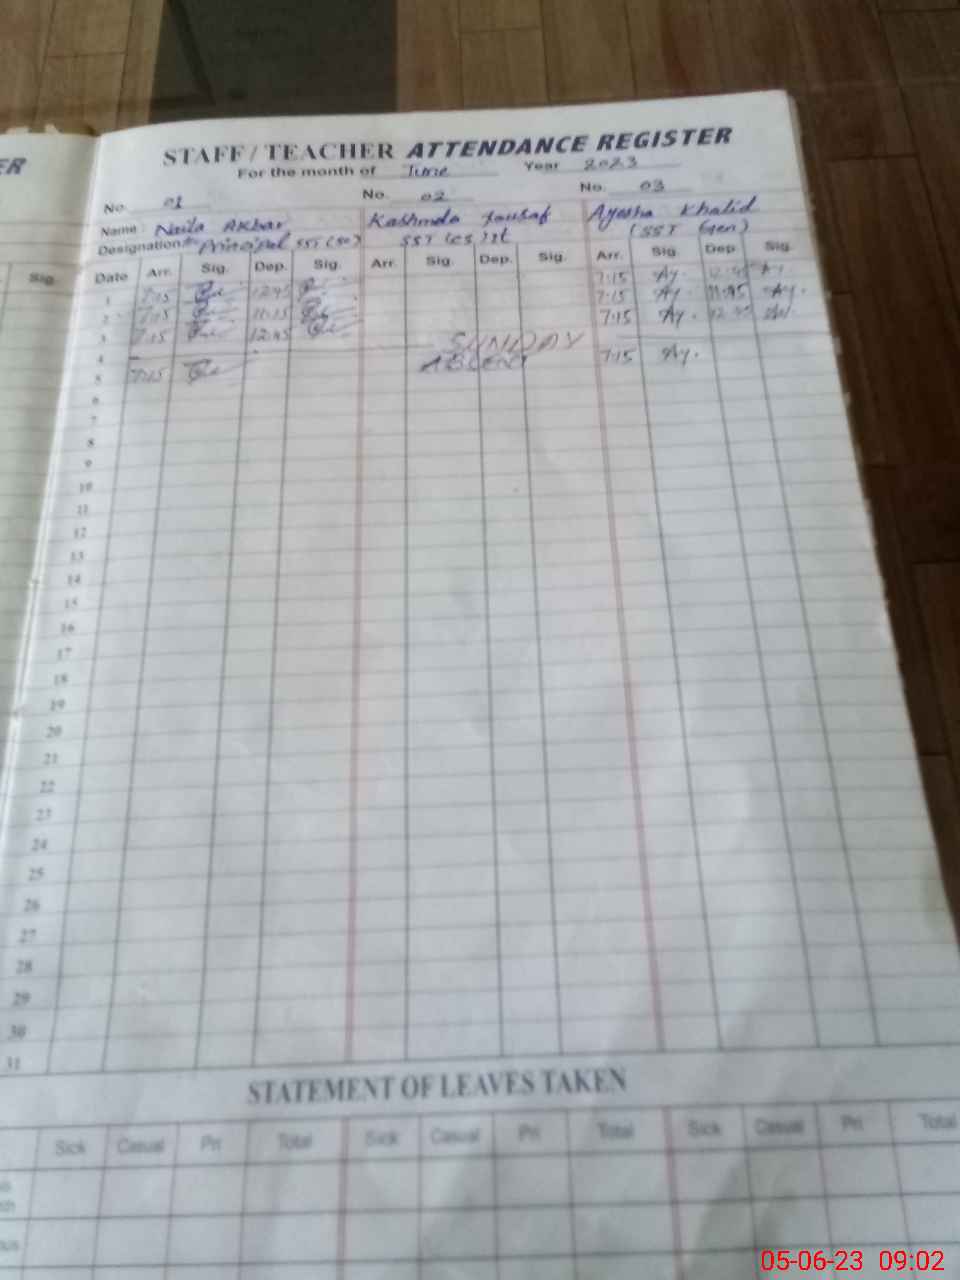 ER
STAFF / TEACHER ATTENDANCE REGISTER
For the month of June Year 2023
No. 01 No. 02 No. 03
Name Naila Akbar Kashmala Yousaf Ayesha Khalid
Designation Principal SST (SC) SST (CS) IT (SST Gen)
Sig. Date Arr. Sig. Dep. Sig. Arr. Sig. Dep. Sig. Arr. Sig. Dep. Sig.
1 7:15 12:45 7:15 Ay. 12:45 Ay.
2 7:15 11:15 7:15 Ay. 11:45 Ay.
3 7:15 12:45 7:15 Ay. 12:45
4 SUNDAY
5 7:15 ABSENT 7:15 Ay.
6
7
8
9
10
11
12
13
14
15
16
17
18
19
20
21
22
23
24
25
26
27
28
29
30
31
STATEMENT OF LEAVES TAKEN
Sick Casual Pri Total Sick Casual Pri Total Sick Casual Pri Total
05-06-23 09:02